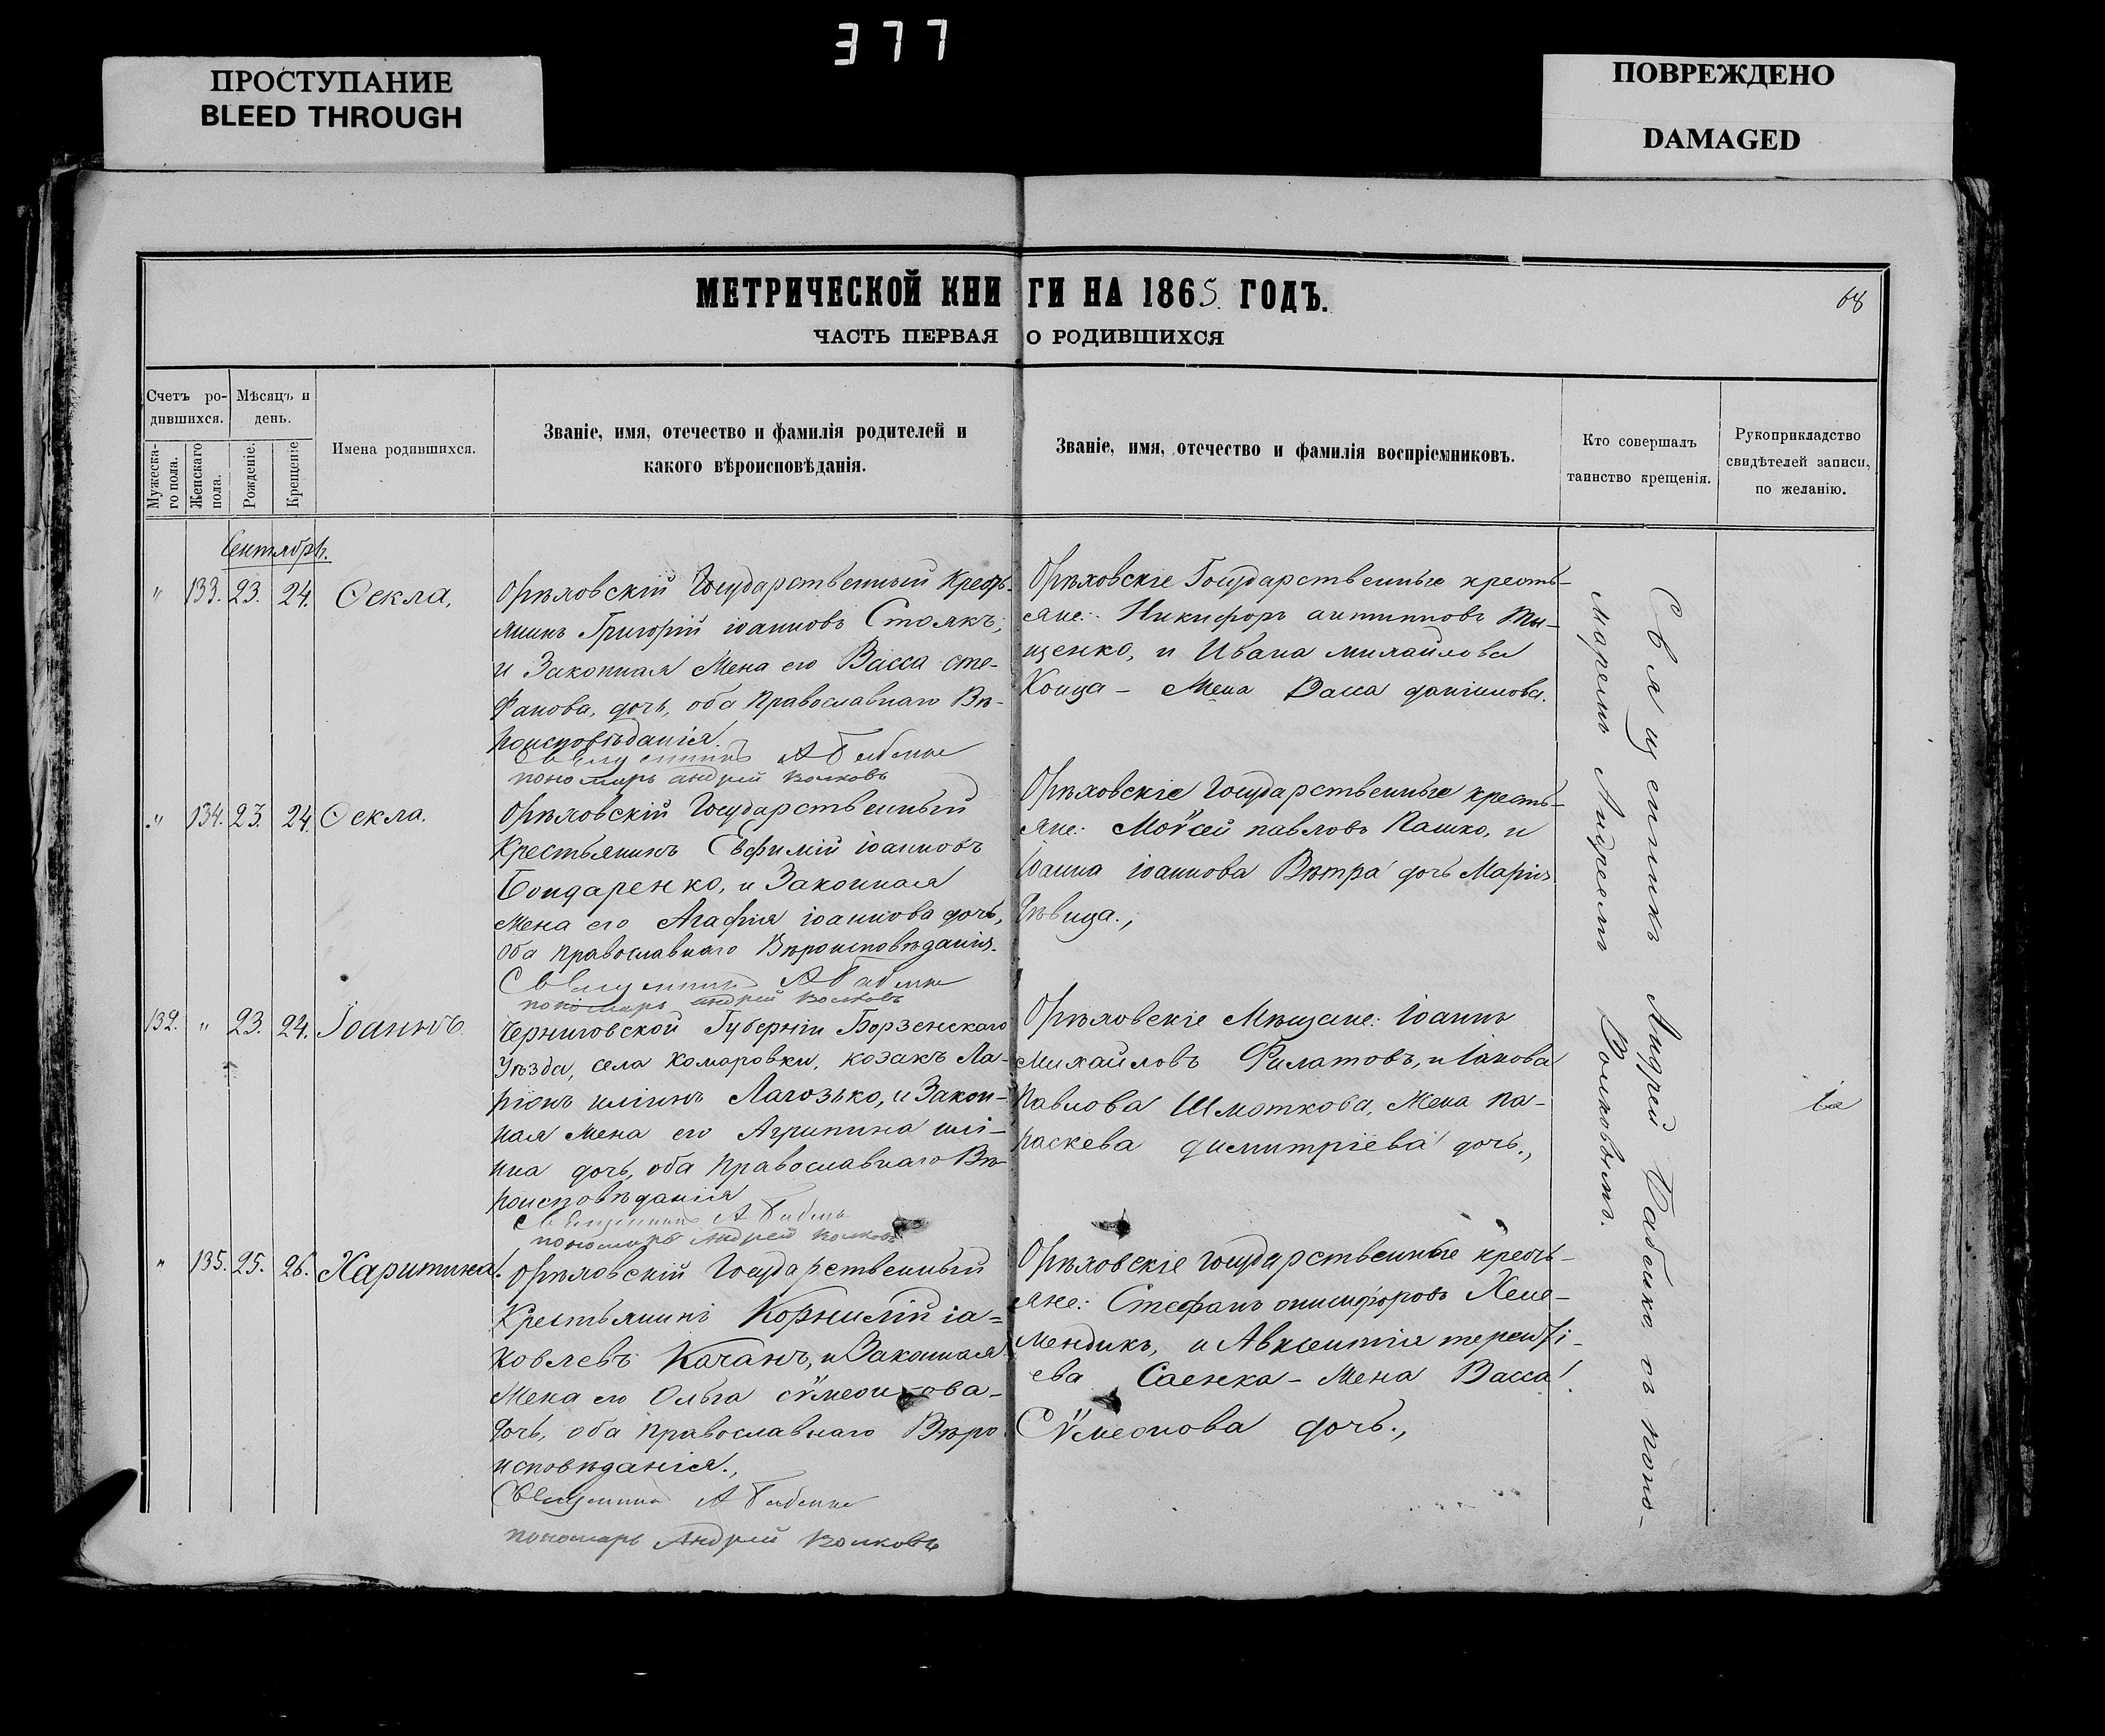 377
ПРОСТУПАНИЕ
BLEED THROUGH
ПОВРЕЖДЕНО
DAMAGED
МЕТРИЧЕСКОЙ КНИГИ НА 1865. ГОДЪ.
68
ЧАСТЬ ПЕРВАЯ О РОДИВШИХСЯ
Счетъ ро-
дившихся.
Мужеска-
го пола.
Женскаго
пола.
Мѣсяцъ и
день.
Рожденіе.
Крещеніе
Имена родившихся.
Званіе, имя, отечество и фамилія родителей и
какого вѣроисповѣданія.
Званіе, имя, отечество и фамилія воспріемниковъ.
Кто совершалъ
таинство крещенія.
Рукоприкладство
свидѣтелей записи,
по желанію.
Сентябрь.
" 133. 23. 24. Ѳекла,
Орѣховскій Государственный Кресть-
янинъ Григорій іоанновъ Стоякъ,
и Законная Жена его Васса сте-
фанова, дочь, оба Православнаго Вѣ-
роисповѣданія.
Священникъ А Бабина
пономарь андрей волковъ
Орѣховскіе Государственные кресть-
яне: Никифоръ антиповъ Ты-
щенко, и Ивана михайлова
Коица - Жена Васса
" 134. 23. 24. Ѳекла.
Орѣховскій Государственный
Крестьянинъ Евфимій іоанновъ
Бондаренко, и Законная
жена его Агафія іоаннова дочь,
Оба православнаго Вѣроисповѣданія.
Священникъ А Бабина
пономарь андрей волковъ
Орѣховскіе Государственные кресть-
яне: Моѵсей павловъ Пашко, и
іоанна іоаннова Вѣтра дочь Марія
Дѣвица.,
132. " 23. 24. Іоаннъ
Черниговской Губерніи Борзенскаго
Уѣзда, села Комаровки, козакъ Ла-
ріонъ иліинъ Лагозько, и Закон-
ная жена его Агрипина илі-
ина дочь, оба Православнаго Вѣ-
роисповѣданія
Священникъ А Бабина
пономарь Андрей волковъ
Орѣховскіе Мѣщане: іоаннъ
михайловъ Филатовъ, и Іакова
Павлова Шмоткова, Жена Па-
раскева димитріева дочь.,
" 135. 25. 26. Харитина.
Орѣховскій Государственный
Крестьянинъ Корнилій іа=
ковлевъ Качанъ, и Законная
Жена его Ольга сѵмеонова-
дочь, оба православнаго Вѣро
исповѣданія.,
Священникъ А Бабина
пономарь Андрей волковъ
Орѣховскіе государственные кресть-
яне: Стефанъ онисифоровъ Хеле-
мендикъ, и Авксентія теренті-
ева Саенка - Жена Васса
Сѵмеонова дочь.,
Священникъ Андрей Бабина съ поно-
маремъ Андреемъ Волковымъ.